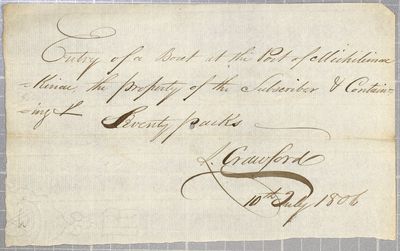 Entry of a Boat at the Port of Michilimac
-kinac, the property of the Subscriber & Contain=
=ing
Seventy packs
L. Crawford
10th July 1806